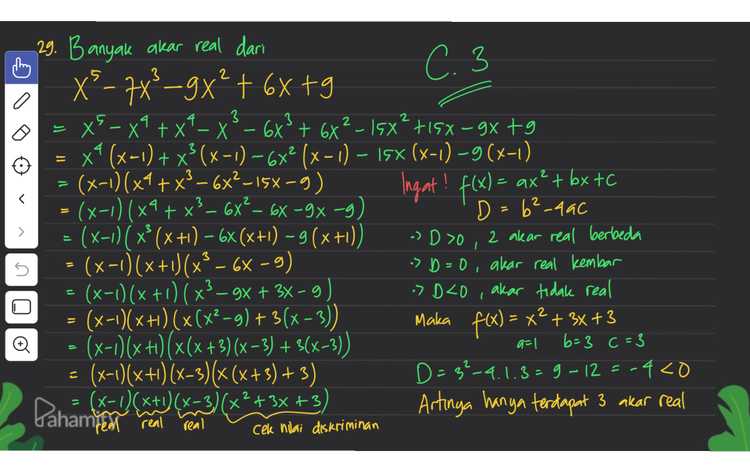 29. Banyak akar real dari
C. 3
x⁵ - 7x³ - 9x² + 6x + 9
= x⁵ - x⁴ + x⁴ - x³ - 6x³ + 6x² - 15x² + 15x - 9x + 9
= x⁴(x-1) + x³(x-1) - 6x²(x-1) - 15x(x-1) - 9(x-1)
= (x-1)(x⁴ + x³ - 6x² - 15x - 9)
= (x-1)(x⁴ + x³ - 6x² - 6x - 9x - 9)
= (x-1)(x³(x+1) - 6x(x+1) - 9(x+1))
= (x-1)(x+1)(x³ - 6x - 9)
= (x-1)(x+1)(x³ - 9x + 3x - 9)
= (x-1)(x+1)(x(x²-9) + 3(x-3))
= (x-1)(x+1)(x(x+3)(x-3) + 3(x-3))
= (x-1)(x+1)(x-3)(x(x+3) + 3)
= (x-1)(x+1)(x-3)(x² + 3x + 3)
real real real cek nilai diskriminan
Ingat! f(x) = ax² + bx + c
D = b² - 4ac
·> D>0, 2 akar real berbeda
·> D=0, akar real kembar
·> D<0, akar tidak real
Maka f(x) = x² + 3x + 3
a=1 b=3 c=3
D = 3² - 4.1.3 = 9 - 12 = -4 <0
Artinya hanya terdapat 3 akar real